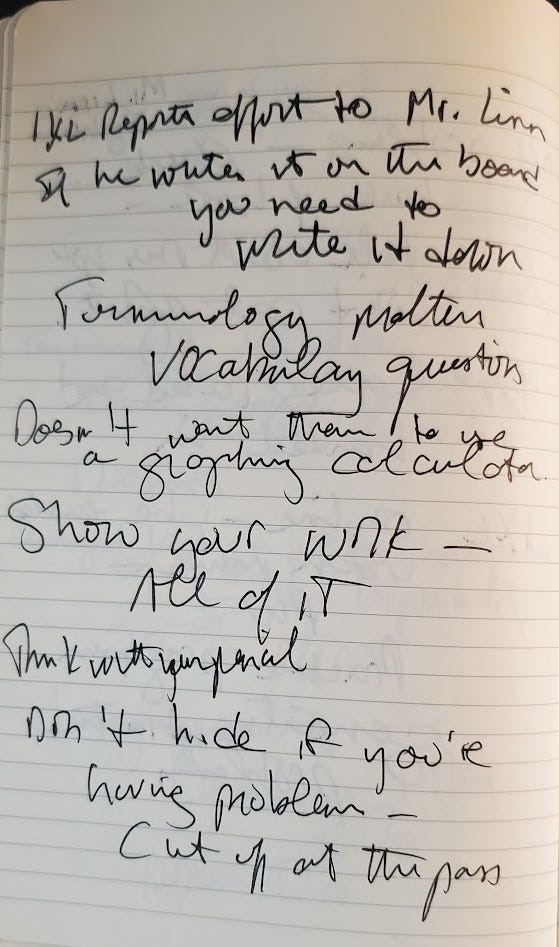 IXL Reports effort to Mr. Linn
If he writes it on the board
you need to
write it down
Terminology matters
Vocabulary question
Doesn't want them to use
a graphing calculator.
Show your work —
All of iT
Think with your pencil
Don't hide if you're
having problem —
Cut off at the pass